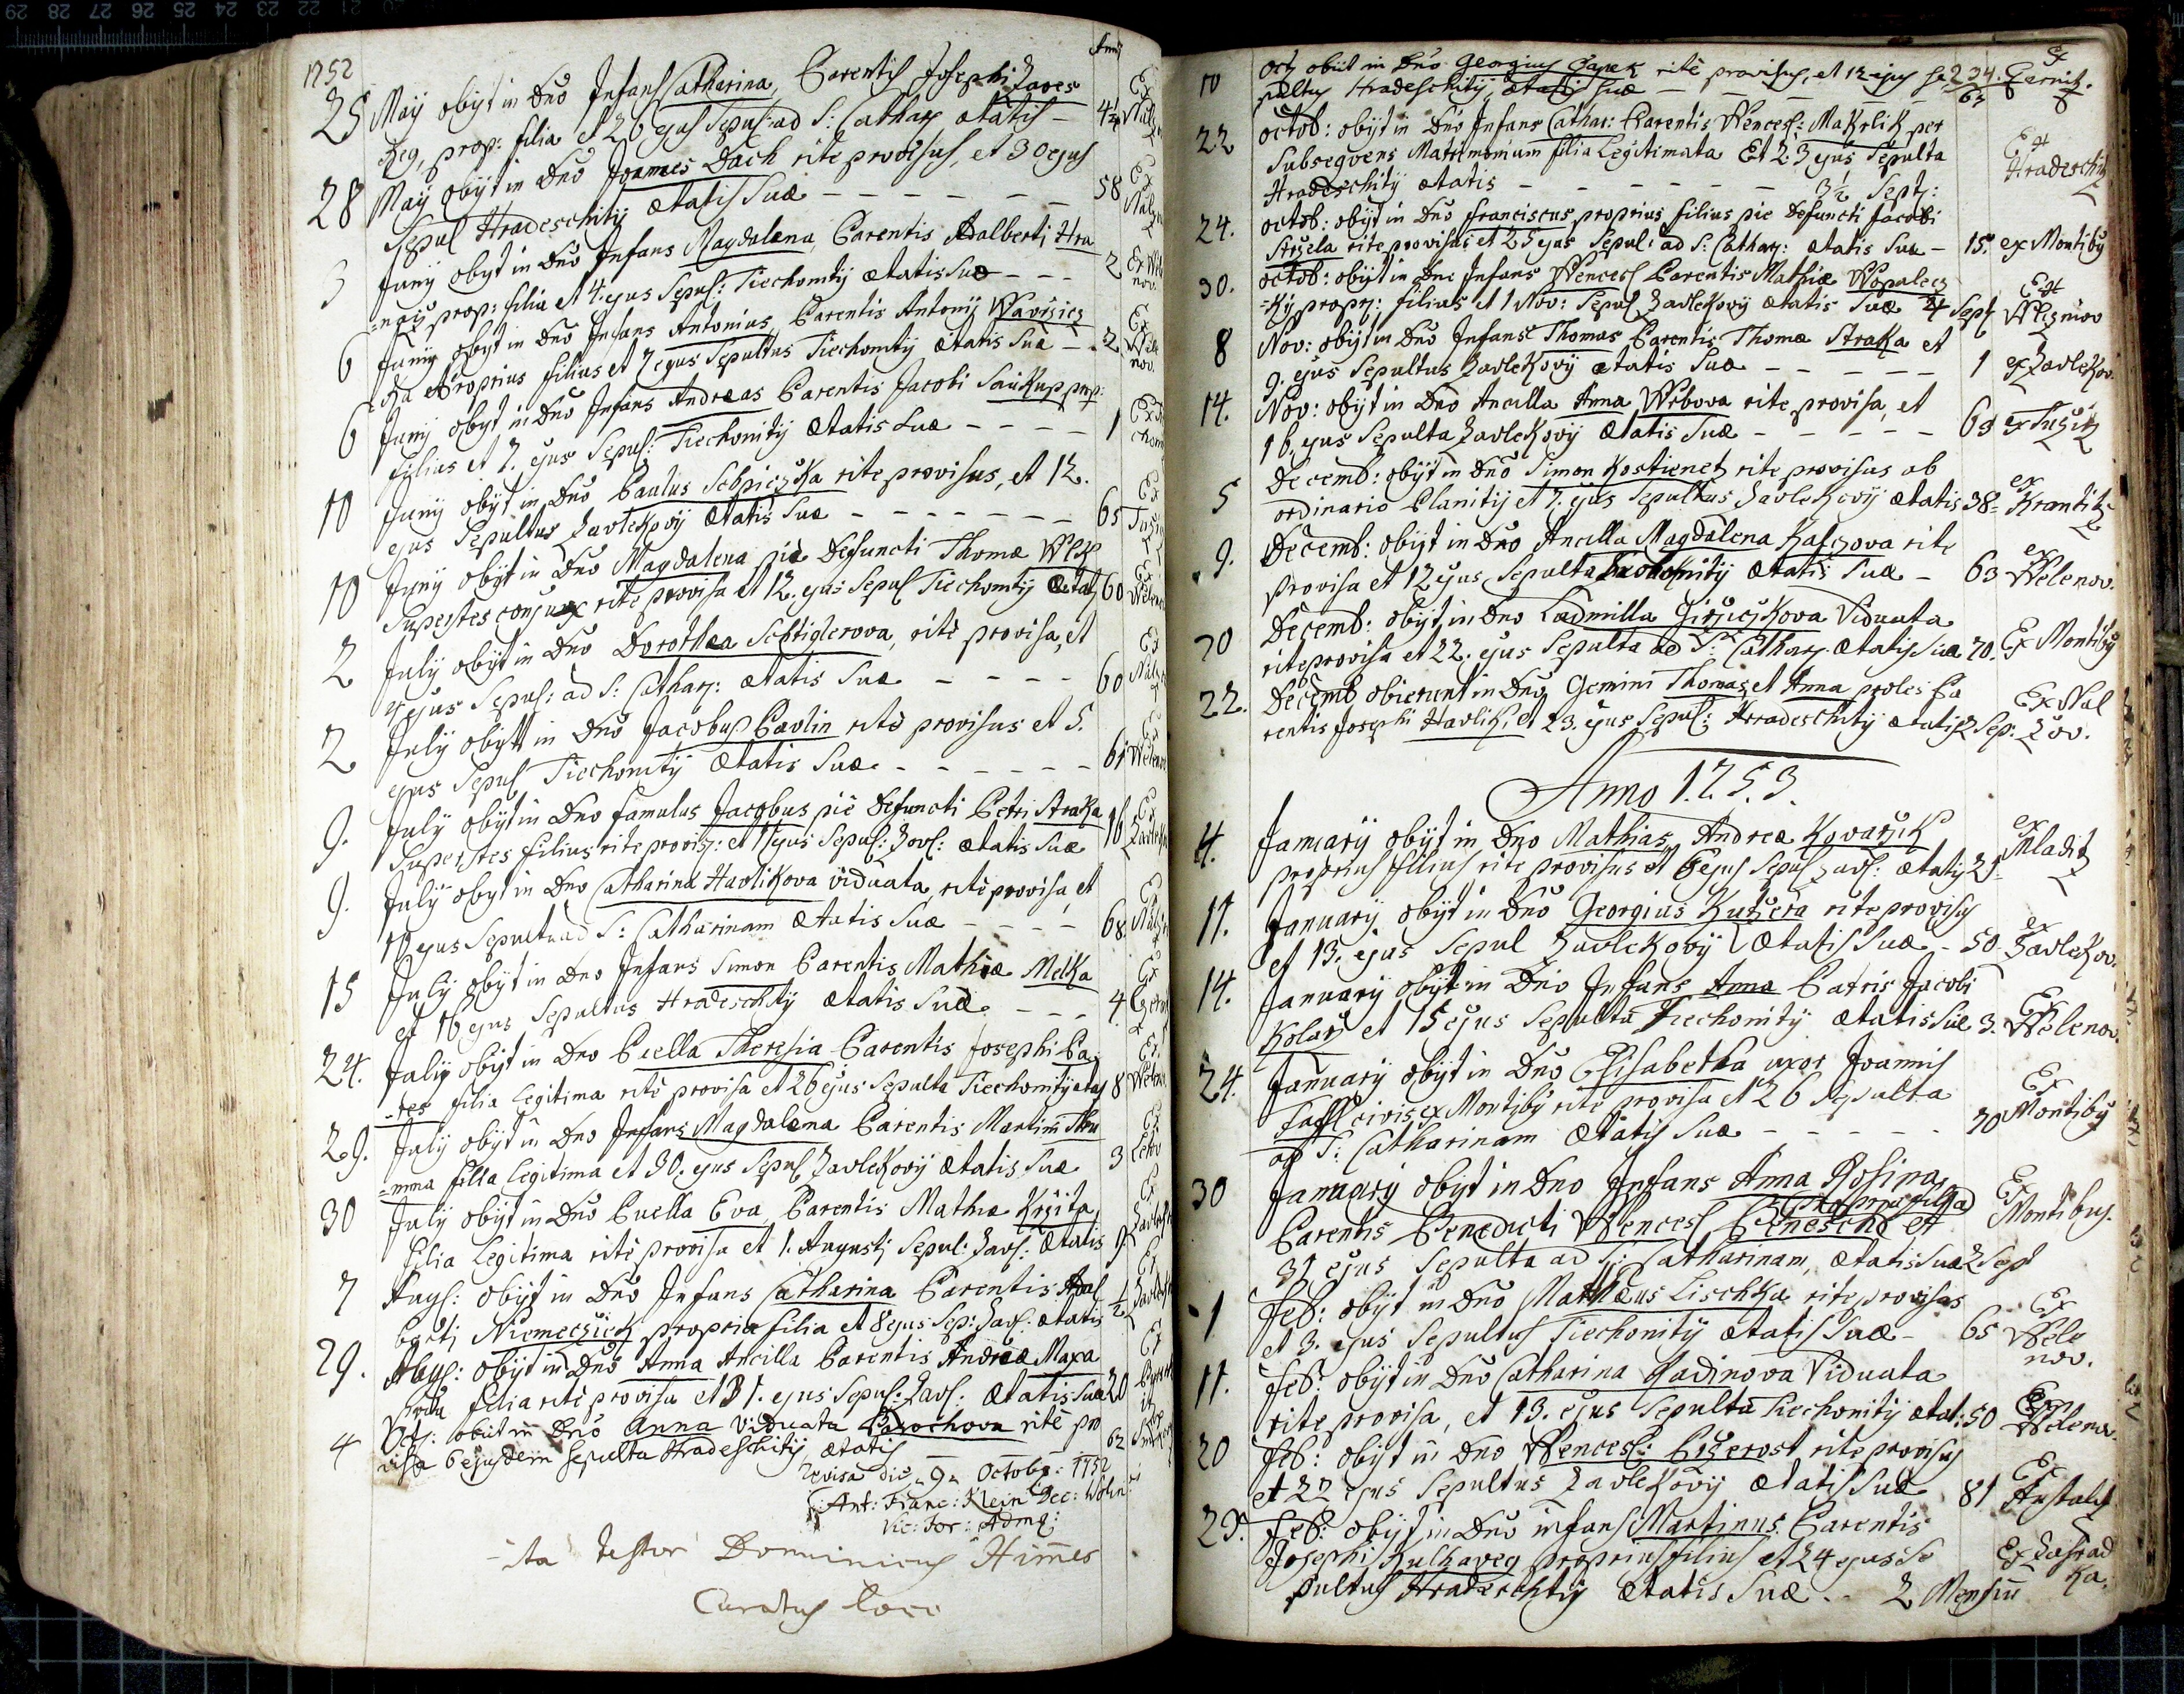 1752
Anni
25 Maÿ obÿt in Dno Infans Catharina, Parentis Josephi Zares
Reg, prop: filia et 26 ejus Sepul: ad S: Cathar ætatis – 4½
28 Maÿ obÿt in Dno Joannes Dach rite provisus, et 30 ejus
Sepul Hradeschitÿ ætatis Suæ – – – – – 58 Ex
3 Junÿ obÿt in Dno Infans Magdalena, Parentis Adalberti Hra
prop: filia et 4. ejus Sepul: Tiechonitÿ ætatis Suæ – – – 2 Ex Wele
nov.
6 Junÿ obÿt in Dno Infans Antonius, Parentis Antonÿ Wavrzicz
ka proprius filius et 7 ejus Sepultus Tiechonitÿ ætatis Suæ – 2 Ex Wele
nov.
6 Junÿ obÿt in Dno Infans Andreas Parentis Jacobi Saukup prop:
filius et 7. ejus Sepul: Tiechonitÿ ætatis Suæ – – – – 1
10 Junÿ obÿt in Dno Paulus Schpiczka rite provisus, et 12.
ejus Sepultus Zavlekovÿ ætatis Suæ – – – – – – – 65 Ex
10 Junÿ obÿt in Dno Magdalena pie Defuncti Thomæ Wlk
Superstes conjunx rite provisa et 12. ejus Sepul Tiechonitÿ ætat 60 Ex
2 Julÿ obÿt in Dno Dorothea Schtiglerova, rite provisa, et
4 ejus Sepul: ad S: Cathar: ætatis Suæ – – – – 60 Ex
2 Julÿ obÿt in Dno Jacobus Pavlin rite provisus et 5.
ejus Sepul Tiechonitÿ ætatis Suæ – – – – – – 61 Ex
9. Julÿ obÿt in Dno famulus Jacobus pie Defuncti Petri Straka
Superstes filius rite provis: et 11 ejus Sepul: Zavl: ætatis Suæ 16 Ex
9. Julÿ obÿt in Dno Catharina Havlikova viduata, rite provisa, et
ejus Sepulta ad S: Catharinam ætatis Suæ – – – – 68. Ex
15 Julÿ obÿt in Dno Infans Simon Parentis Mathiæ Melka
et 16 ejus Sepultus Hradeschitÿ ætatis Suæ – – – 4 Ex
24. Julÿ obÿt in Dno Puella Theresia Parentis Josephi Pa
=res filia Legitima rite provisa et 26 ejus Sepulta Tiechonitÿ ætat 8 Ex
29. Julÿ obÿt in Dno Infans Magdalena Parentis Martini Thu
=mma filla Legitima et 30. ejus Sepul Zavlekovÿ ætatis Suæ 3 Ex
30 Julÿ obÿt in Dno Puella Eva, Parentis Mathiæ Krzita,
filia Legitima rite provisa et 1. Augusti Sepul: Zavl: ætatis 9 Ex
7 Augs: obÿt in Dno Infans Catharina Parentis Adal
berti Niemeczick propria filia et 8 ejus Sep: Zavl: ætatis ½ Ex
29. Augs: obÿt in Dno Anna Ancilla Parentis Andreæ Maxa
filia rite provisa et 31. ejus Sepul: Zavl: ætatis Suæ 20 Ex
4 obiit in Dno Anna Viduata rite pro
visa 6 ejusdem sepulta Hradeschitÿ ætatis 62
revisa die 9 Octobr: 1752
Ant: Franc: Klein Dec: Wolin:
Vic: For: Adm:
Ita testor Dominicus Himes
Curatus Loci
10 Oct obiit in Dno Georgius Papek rite provisus, et 12 ejus se 234. Ex
pultus Hradeschitÿ, ætatis suæ – – – – 63 Czernitz.
22 octob: obÿt in Dno Infans Cathar: Parentis Wencesl: Makrlik per
Subseqvens Matrimonium filia Legitimata Et 23 ejus Sepulta Ex
Hradeschitÿ ætatis – – – – – – 3½ Sept: Hradeschitz
24. octob: obÿt in Dno franciscus proprius filius pie Defuncti Jacobi
Strzela rite provisus et 25 ejus Sepul: ad S: Cathar: ætatis Suæ – 15. ex Montibÿ
30. octob: obÿt in Dno Infans Wencesl Parentis Mathiæ Wopalecz
=kÿ propr: filius et 1 Nov: Sepul Zavlekovÿ ætatis Suæ 4 Sept Ex
8 Nov: obÿt in Dno Infans Thomas Parentis Thomæ Straka et
9. ejus Sepultus Zavlekovÿ ætatis Suæ – – – – – 1 ex Zavlekov.
14. Nov: obÿt in Dno Ancilla Anna Wrbova rite provisa, et
16. ejus Sepulta Zavlekovÿ ætatis Suæ – – – – – 63 ex Tužitz
5 Decemb: obÿt in Dno Simon Kostienetz rite provisus ab
ordinario Planitÿ et 7. ejus Sepultus Zavlekovÿ ætatis 38 – ex Krantitz
9. Decemb: obÿt in Dno Ancilla Magdalena Kaszova rite
provisa et 12 ejus Sepulta ætatis Suæ – 63 ex Welenov.
20 Decemb: obÿt in Dno Ludmilla Girziczkova Viduata
rite provisa et 22. ejus Sepulta ad S: Cathar. ætatis Suæ 70. Ex Montibÿ
22. Decemb obierunt in Dno Gemini Thomas et Anna proles Pa
rentis Josephi Havlik, et 23. ejus Sepul: Hradeschitÿ ætatis 2 Sep. Ex Nal
zov.
Anno 1753.
4. Januarÿ obÿt in Dno Mathias, Andreæ Kovarzik
proprius filius rite provisus et 6 ejus Sepul zavl: ætatis 25 ex Mladitz
11. Januarÿ obÿt in Dno Georgius Kutzera rite provisus
et 13. ejus Sepul Zavlekovÿ ætatis Suæ – 50 ex Zavlekov.
14. Januarÿ obÿt in Dno Infans Anna Patris Jacobi
Kolarz et 15 ejus Sepulta Tiechonitÿ ætatis Suæ 3. Ex Welenov.
24. Januarÿ obÿt in Dno Elisabetha uxor Joannis
Taffl civis ex Montibÿ rite provisa et 26 Sepulta
ad S: Catharinam ætatis Suæ – – – – – 70 Ex Montibÿ
30 Januarÿ obÿt in Dno Infans Anna Rosina,
propria filia
Parentis Benedicti Wencesl Benesch et Ex Montibus.
31 ejus Sepulta ad S: Catharinam, ætatis Suæ 2 Sept
1 Feb: obÿt in Dno Mathæus Lischka rite provisus
et 3. ejus Sepultus Tiechonitÿ ætatis Suæ – 65 Ex Wele
nov.
11. Feb: obÿt in Dno Catharina Radinova Viduata
rite provisa, et 13. ejus Sepulta Tiechonitÿ ætat: 50 Ex Welenov.
20 Feb: obÿt in Dno Wencesl: rite provisus
et 22 ejus Sepultus Zavlekovÿ ætatis Suæ 81 Ex
Feb: obÿt in Dno infans Martinus Parentis
Josephi Kulhaveg proprius filius et 24 ejus Se
pultus Hradeschitÿ ætatis Suæ .. 2 Mensiu Ex Zahrad
ka.